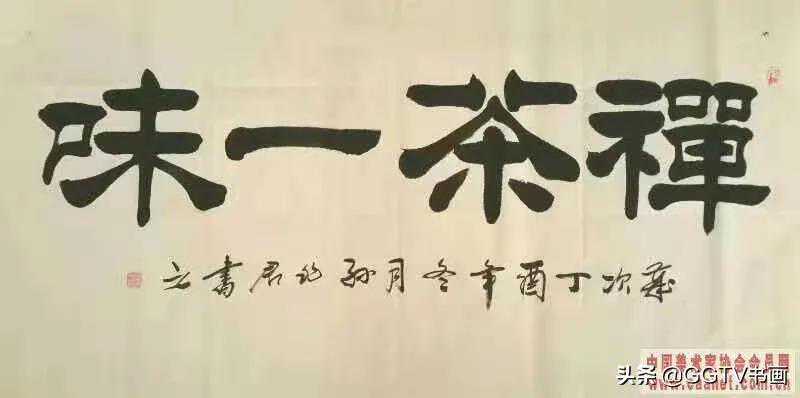 禪茶一味
歲次丁酉年冬月孫君書之
中国美术家协会会员网
www.caanet.com.cn
头条 @GGTV书画